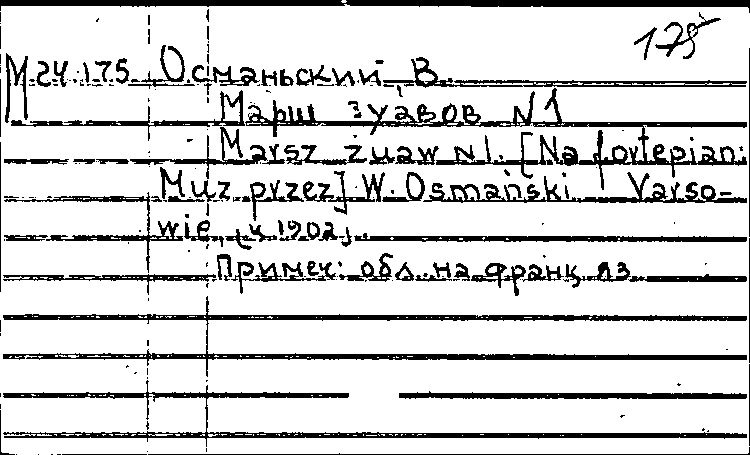 175
М 24.175 Османьский, В.
Марш зуавов N 1
Marsz żuaw N 1. [Na fortepian.
Muz przez] W. Osmański Varso-
wie, [ч 1902].
Примеч: обл. на франц яз.